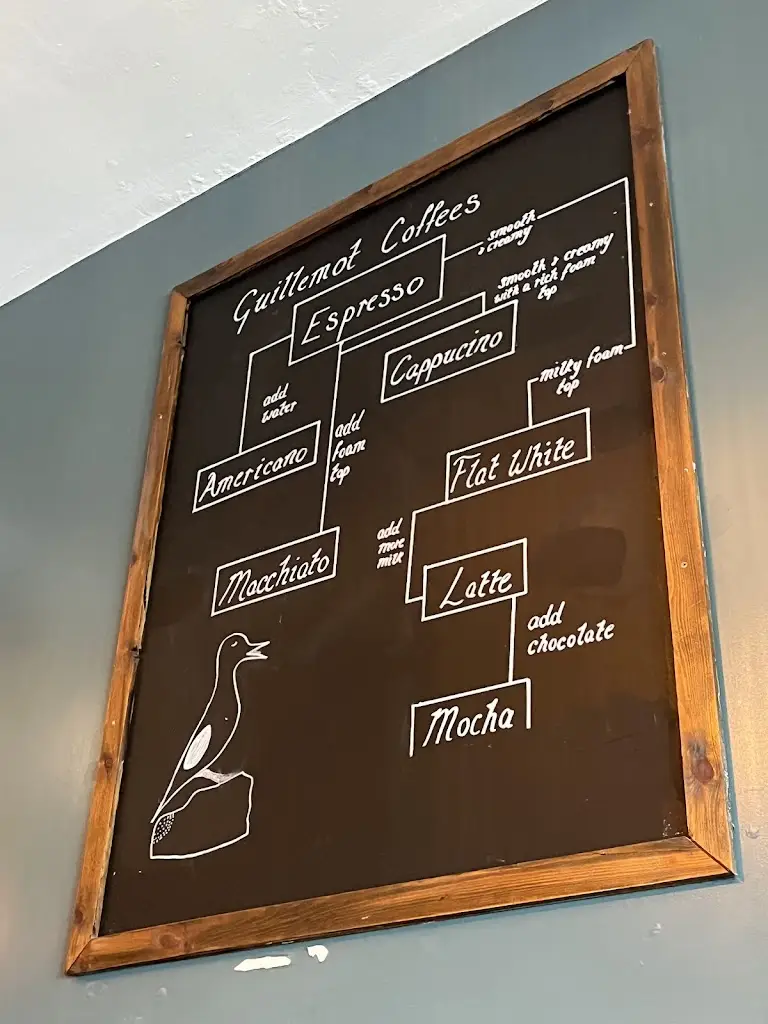 Guillemot Coffees
Espresso
smooth
& creamy
smooth & creamy
with a rich foam
top
Cappucino
add
water
add
foam
top
milky foam
top
Americano
Flat White
add
more
milk
Macchiato
Latte
add
chocolate
Mocha